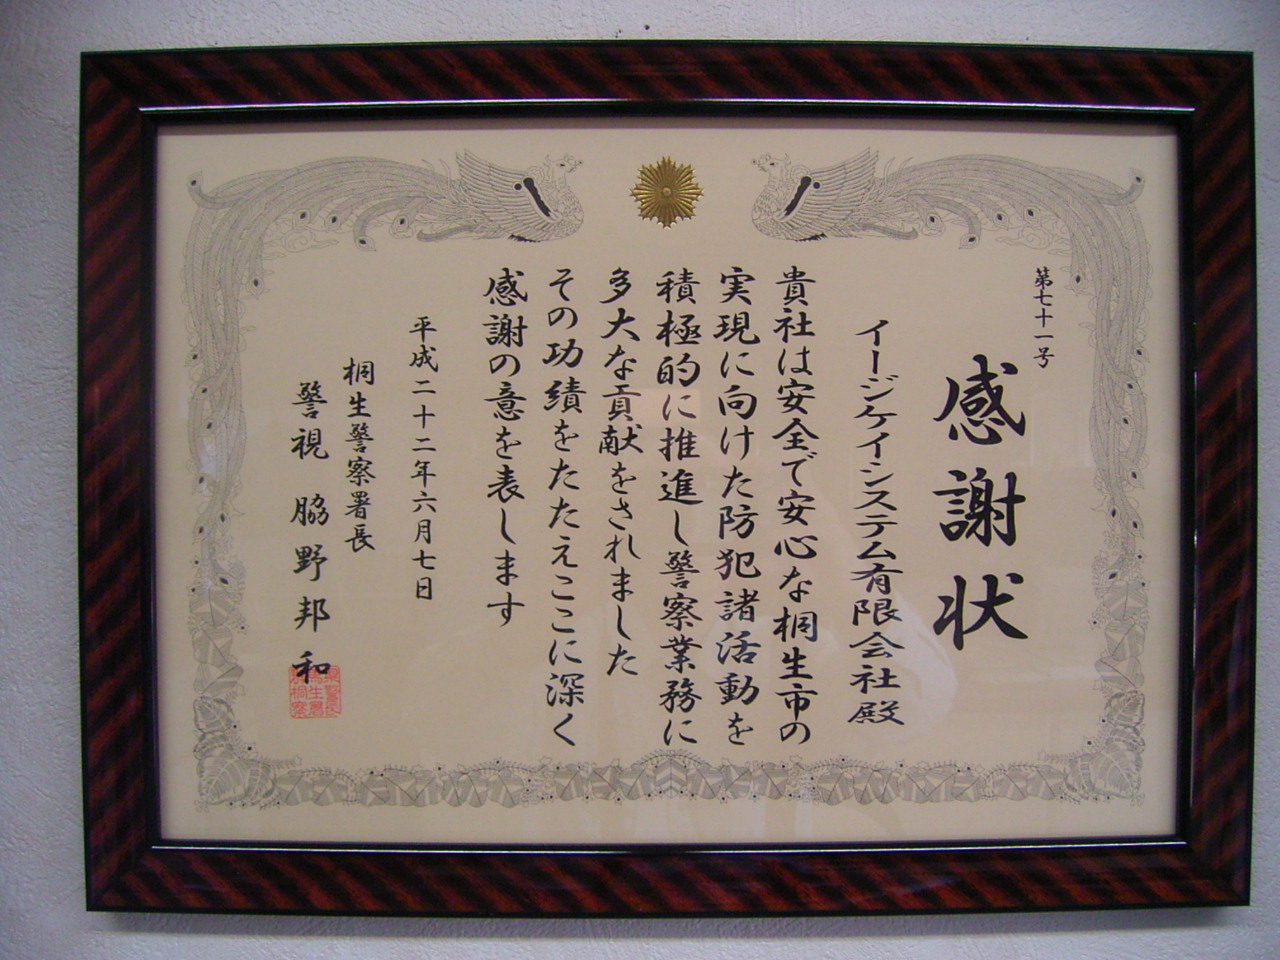 第七十一号
感謝状
イージケイシステム有限会社殿
貴社は安全で安心な桐生市の
実現に向けた防犯諸活動を
積極的に推進し警察業務に
多大な貢献をされました
その功績をたたえここに深く
感謝の意を表します
平成二十二年六月七日
桐生警察署長
警視 脇野邦和